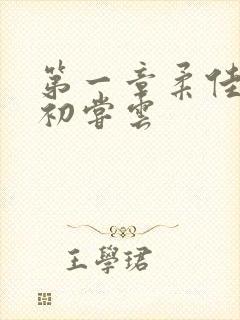 第一章柔佳
初嘗雲
王學珺